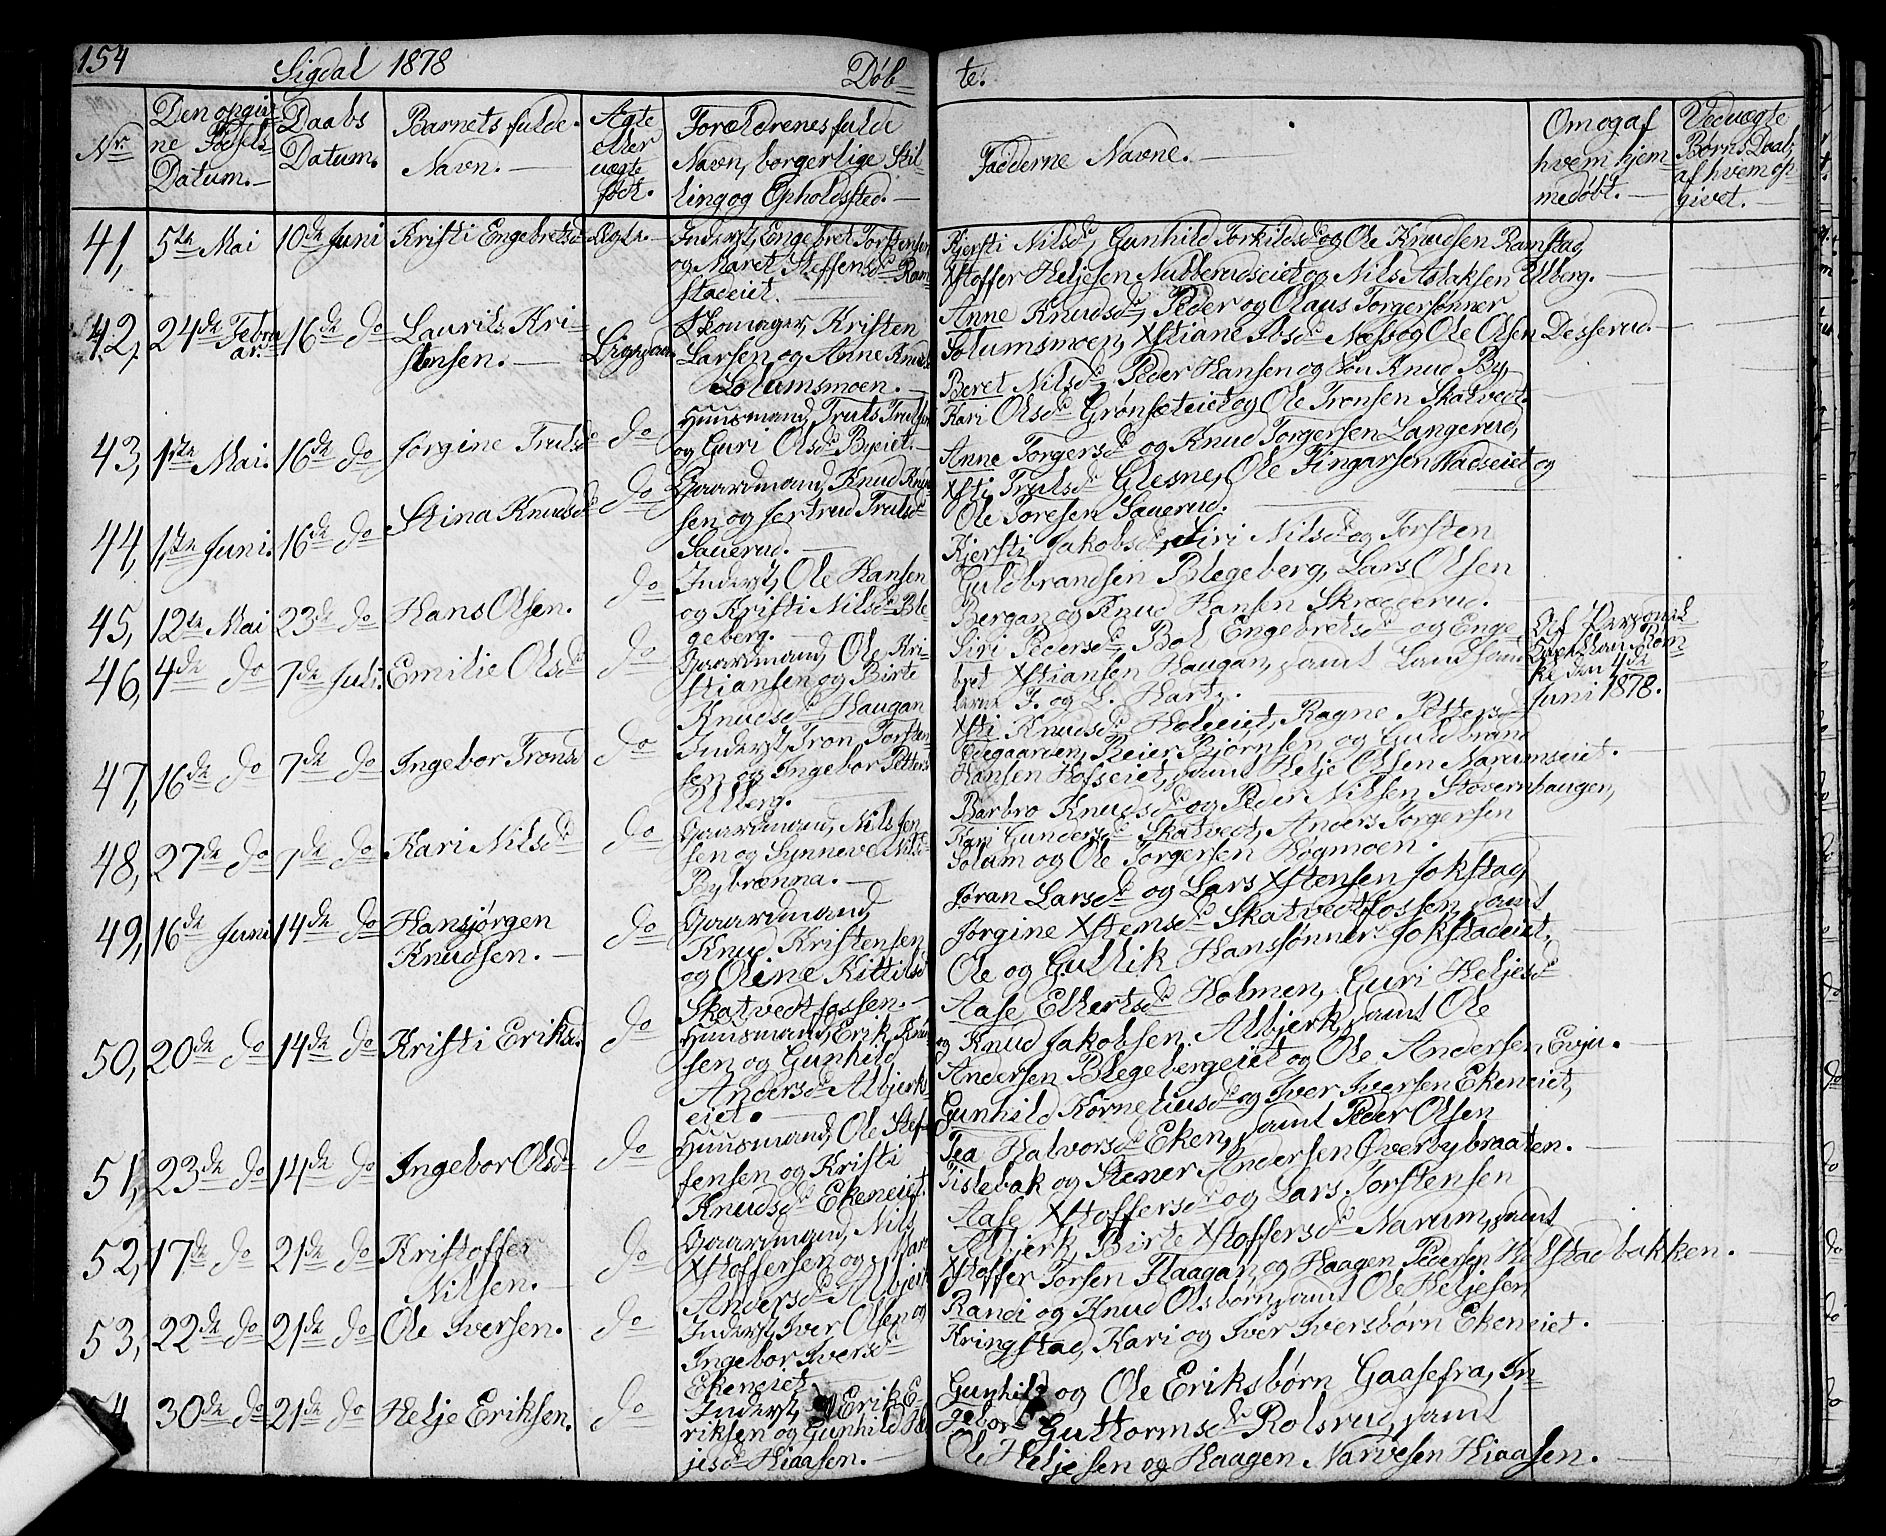 154 Sigdal 1878 Døb- te.
Nr.
Den opgiv-
ne Fødsels-
Datum.
Daabs
Datum.
Barnets fulde
Navn.
Ægte
eller
uægte
født.
Forældrenes fulde
Navn, borgerlige Stil-
ling og Opholdssted.
Faddernes Navne.
Om og af
hvem hjem-
medøbt.
Ved uægte
Børns Daab,
af hvem op-
givet.
41, 5te Mai 10de Juni Kristi Engebretsd. Ægte.
Inderst, Engebret Torstensen,
og Maret Steffensd. Ram-
stadeiet.
Kjersti Nilsd, Gunhild Torkildsd og Ole Knudsen Ramstad,
Xstoffer Heljesen Nubberudseiet og Nils Aslaksen Ulberg.
42, 24de Febru-
ar. 16de do Laurits Kri-
stensen. Ligesaa.
Skomager, Kristen
Larsen og Anne Knudsd
Solumsmoen.
Anne Knudsd, Peder og Olaus Torgersønner
Solumsmoen, Xstiane Ibsd Næs og Ole Olsen Desserud.
43, 1ste Mai. 16de do Jørgine Trulsd do
Huusmand, Truls Trulsen
og Guri Olsd Byeiet.
Beret Nilsd, Peder Hansen og Søn Knud By,
Kari Olsd Grønseteiet og Ole Tronsen Skatvedt.
44, 1ste Juni. 16de do Stina Knudsd do
Gaardmand, Knud Knud-
sen og Jertrud Trulsd
Sauerud.
Anne Torgersd og Knud Torgersen Langerud,
Xsti Trulsd Glesne, Ole Fingarsen Vadseiet og
Ole Toresen Sauerud.
45, 12te Mai 23de do Hans Olsen. do
Inderst, Ole Hansen
og Kristi Nilsd Ble-
geberg.
Kjersti Jakobsd, Siri Nilsd og Torsten
Guldbrandsen Blegeberg, Lars Olsen
Bergan og Knud Hansen Skræderud.
46, 4de do 7de Juli. Emilie Olsd do
Gaardmand, Ole Kri-
stiansen og Birte
Knudsd Haugan
Siri Pedersd, Bol Engebretsd og Enge-
bret Xstiansen Haugan, samt
T. og L. Hartz.
Af Personel
den 4de
Juni 1878.
47, 16de do 7de do Ingebor Tronsd do
Inderst, Tron Torsten-
sen og Ingebor Pettersd
Ulberg.
Xsti Knudsd Holeiet, Ragne Pettersd
Edegaarden, Reier Bjørnsen og Guldbrand
Hansen Hofseiet, samt Helje Olsen Narumseiet.
48, 27de do 7de do Kari Nilsd do
Gaardmand, Nils
sen og Synneve Nilsd
Bybrænna.
Barbro Knudsd og Peder Nilsen Støvernhaugen,
Kari Gundersd Skatvedt, Anders Torgersen
Solum og Ole Torgersen Hogmoen.
49, 16de Juni 14de do Hansjørgen
Knudsen. do
Gaardmand,
Knud Kristensen
og Oline Kittilsd
Skatvedtfossen.
Jøran Larsd og Lars Xstensen Jokstad,
Jørgine Xstensd Skatvedtfossen, samt
Ole og Gullik Hanssønner Jokstadeiet.
50, 20de do 14de do Kristi Eriksd. do
Huusmand, Erik Knud-
sen og Gunhild
Andersd Albjerks-
eiet.
Aase Ellertsd Holmen, Guri Heljesd
og Knud Jakobsen Albjerk, samt Ole
Andersen Blegebergeiet og Ole Andersen Evju.
51, 23de do 14de do Ingebor Olsd do
Huusmand, Ole Stef-
fensen og Kristi
Knudsd Ekeneiet.
Gunhild Korneliusd og Iver Iversen Ekeneiet,
Tea Halvorsd Eken, samt Peder Olsen
Tislebak og Stener Andersen Øverbybraaten.
52, 17de do 21de do Kristoffer
Nilsen. do
Gaardmand, Nils
Xstoffersen og
Andersd Albjerk
Aase Xstoffersd og Lars Torstensen
Albjerk, Birte Xstoffersd Narum, samt
Xstoffer Torsen Flaagan, og Haagen Pedersen Helstadbakken.
53, 22de do 21de do Ole Iversen. do
Inderst, Iver Olsen og
Ingebor Iversd
Ekeneiet.
Randi og Knud Olsbørn, samt Ole Heljesen
Kringstad, Kari og Iver Iversbørn Ekeneiet.
30de do 21de do Helje Eriksen. do
Inderst, Erik E-
riksen og Gunhild Hel-
jesd Hiaasen.
Gunhild og Ole Eriksbørn Gaasefra, In-
gebor Guttormsd Rolsrud, samt
Ole Heljesen og Haagen Narvesen Hiaasen.